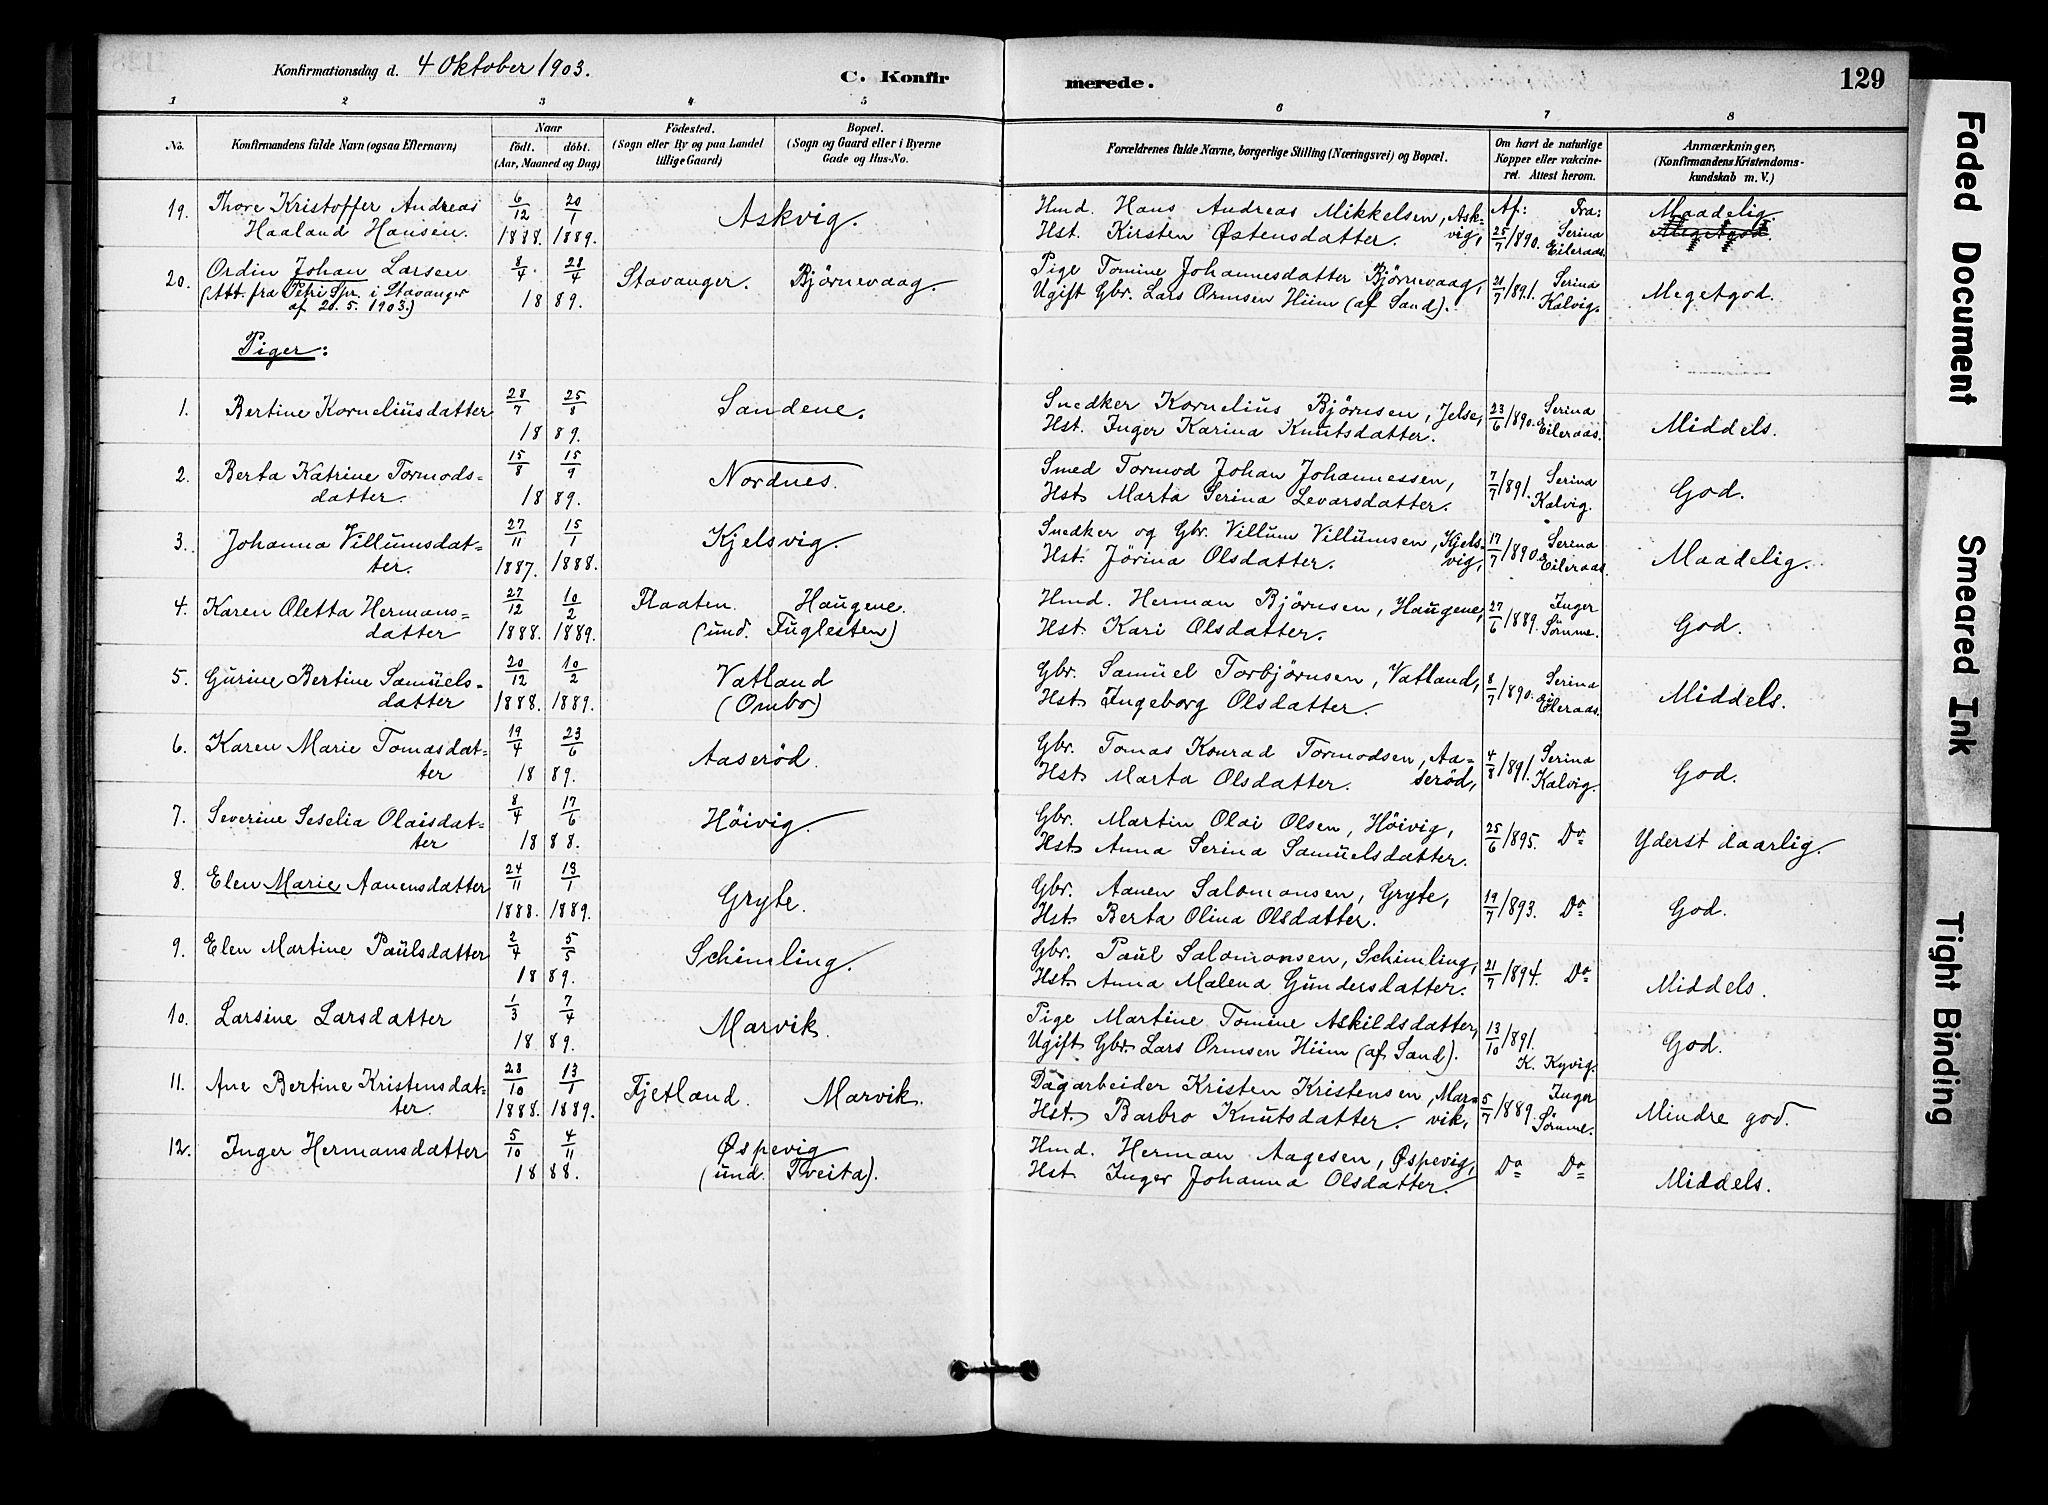 Konfirmationsdag d. 4 Oktober 1903.
C. Konfirmerede.
129
1 2 3 4 5 6 7 8
No.
Konfirmandens fulde Navn (ogsaa Efternavn)
Naar
födt. döbt.
(Aar, Maaned og Dag)
Födested.
(Sogn eller By og paa Landet
tillige Gaard)
Bopæl.
(Sogn og Gaard eller i Byerne
Gade og Hus-No.
Forældrenes fulde Navne, borgerlige Stilling (Næringsvei) og Bopæl.
Om havt de naturlige
Kopper eller vakcine-
ret. Attest herom.
Anmærkninger,
(Konfirmandens Kristendoms-
kundskab m. V.)
19. Thore Kristoffer Andreas 6/12 20/1 Askvig. Hmd. Hans Andreas Mikkelsen, Ask- Af: Fra: Maadelig.
Haaland Hansen. 1888. 1889. Hst. Kirsten Østensdatter. vig, 25/7/890. Serina Eileraas. Megetgod.
20. Ordin Johan Larsen 8/4 28/4 Stavanger. Bjørnevaag. Pige Tomine Johannesdatter Bjørnevaag, 21/7/891. Serina
(Att. fra Petri Spr. i Stavanger 1889. Ugift Gbr. Lars Ormsen Hiim (af Sand). Kalvig. Megetgod.
af 20. 5. 1903.)
Piger:
1. Bertine Korneliusdatter 28/7 25/8 Sandene. Snedker Kornelius Bjørnsen, Jelse, 23/6/890. Serina
1889. Hst. Inger Karina Knutsdatter. Eileraas. Middels.
2. Berta Katrine Tormods- 15/8 15/9 Nordnes. Smed Tormod Johan Johannessen, 7/7/891. Serina
datter. 1889. Hst. Marta Serina Levarsdatter. Kalvig. God.
3. Johanna Villumsdat- 27/11 15/1 Kjelsvig. Snedker og Gbr. Villum Villumsen, Kjels- 17/7/890. Serina
ter. 1887. 1888. Hst. Jørina Olsdatter. vig, Eileraas. Maadelig.
4. Karen Oletta Hermans- 27/12 10/2 Flaaten. Haugene. Hmd. Herman Bjørnsen, Haugene, 27/6/889. Inger
datter 1888. 1889. (und. Fuglesten) Hst. Kari Olsdatter. Sømme. God.
5. Gurine Bertine Samuels- 20/12 10/2 Vatland Gbr. Samuel Torbjørnsen, Vatland, 8/7/890. Serina
datter 1888. 1889. (Ombo) Hst. Ingeborg Olsdatter. Eileraas. Middels.
6. Karen Marie Tomasdat- 19/4 23/6 Aaserød. Gbr. Tomas Konrad Tormodsen, Aa- 4/8/891. Serina
ter 1889. Hst. Marta Olsdatter. serød, Kalvig. God.
7. Severine Seselia Olaisdat- 8/4 17/6 Höivig. Gbr. Martin Olai Olsen, Höivig, 25/6/895. Do Yderst daarlig.
ter 1888. Hst. Anna Serina Samuelsdatter.
8. Elen Marie Aanensdatter 24/11 13/1 Gryte. Gbr. Aanen Salomonsen, Gryte, 19/7/893. Do God.
1888. 1889. Hst. Berta Olina Olsdatter.
9. Elen Martine Paulsdatter 2/4 5/5 Schimling. Gbr. Paul Salomonsen, Schimling, 21/7/894. Do
1889. Hst. Anna Malena Gundersdatter. Middels.
10. Larsine Larsdatter 1/3 7/4 Marvik. Pige Martine Tomine Askildsdatter, 13/10/891.
1889. Ugift Gbr. Lars Ormsen Hiim (af Sand). K. Kyvig. God.
11. Ane Bertine Kristensdat- 28/10 13/1 Fjetland. Marvik. Dagarbeider Kristen Kristensen, Mar- 5/7/889. Inger
ter. 1888. 1889. Hst. Barbro Knutsdatter. vik, Sømme. Mindre god.
12. Inger Hermansdatter 5/10 4/11 Øspevig Hmd. Herman Aagesen, Øspevig, Do Do
1888. (und. Tveita). Hst. Inger Johanna Olsdatter. Middels.
Faded Document
Smeared Ink
Tight Binding